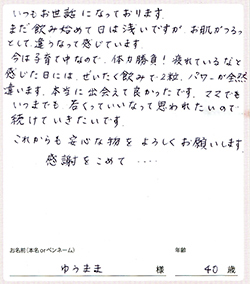 いつもお世話になっております。
まだ飲み始めて日は浅いですが、お肌がつるっ
として違うなって感じています。
今は子育て中なので、体力勝負！疲れているなと
感じた日には、ぜいたく飲みで2粒、パワーが全然
違います。本当に出会えて良かったです。ママでも
いつまでも若くっていいなって思われたいので
続けていきたいです。
これからも安心な物をよろしくお願いします。
感謝をこめて‥‥
お名前(本名orペンネーム)
年齢
ゆうまま 様 40 歳